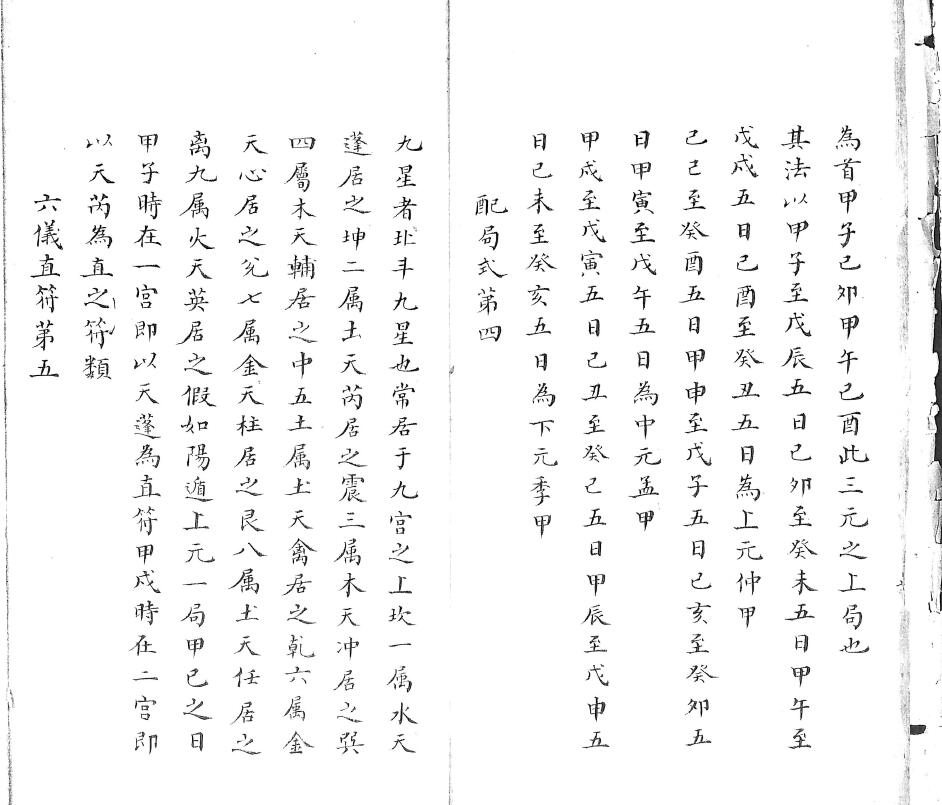 為首甲子己卯甲午己酉此三元之上局也
其法以甲子至戊辰五日己卯至癸未五日甲午至
戊戌五日己酉至癸丑五日為上元仲甲
己巳至癸酉五日甲申至戊子五日己亥至癸卯五
日甲寅至戊午五日為中元孟甲
甲戌至戊寅五日己丑至癸巳五日甲辰至戊申五
日己未至癸亥五日為下元季甲
配局式第四
九星者北斗九星也常居于九宮之上坎一属水天
蓬居之坤二属土天芮居之震三属木天冲居之巽
四屬木天輔居之中五土属土天禽居之乾六属金
天心居之兊七属金天柱居之艮八属土天任居之
离九属火天英居之假如陽遁上元一局甲己之日
甲子時在一宮即以天蓬為直符甲戌時在二宮即
以天芮為直之符類
六儀直符第五